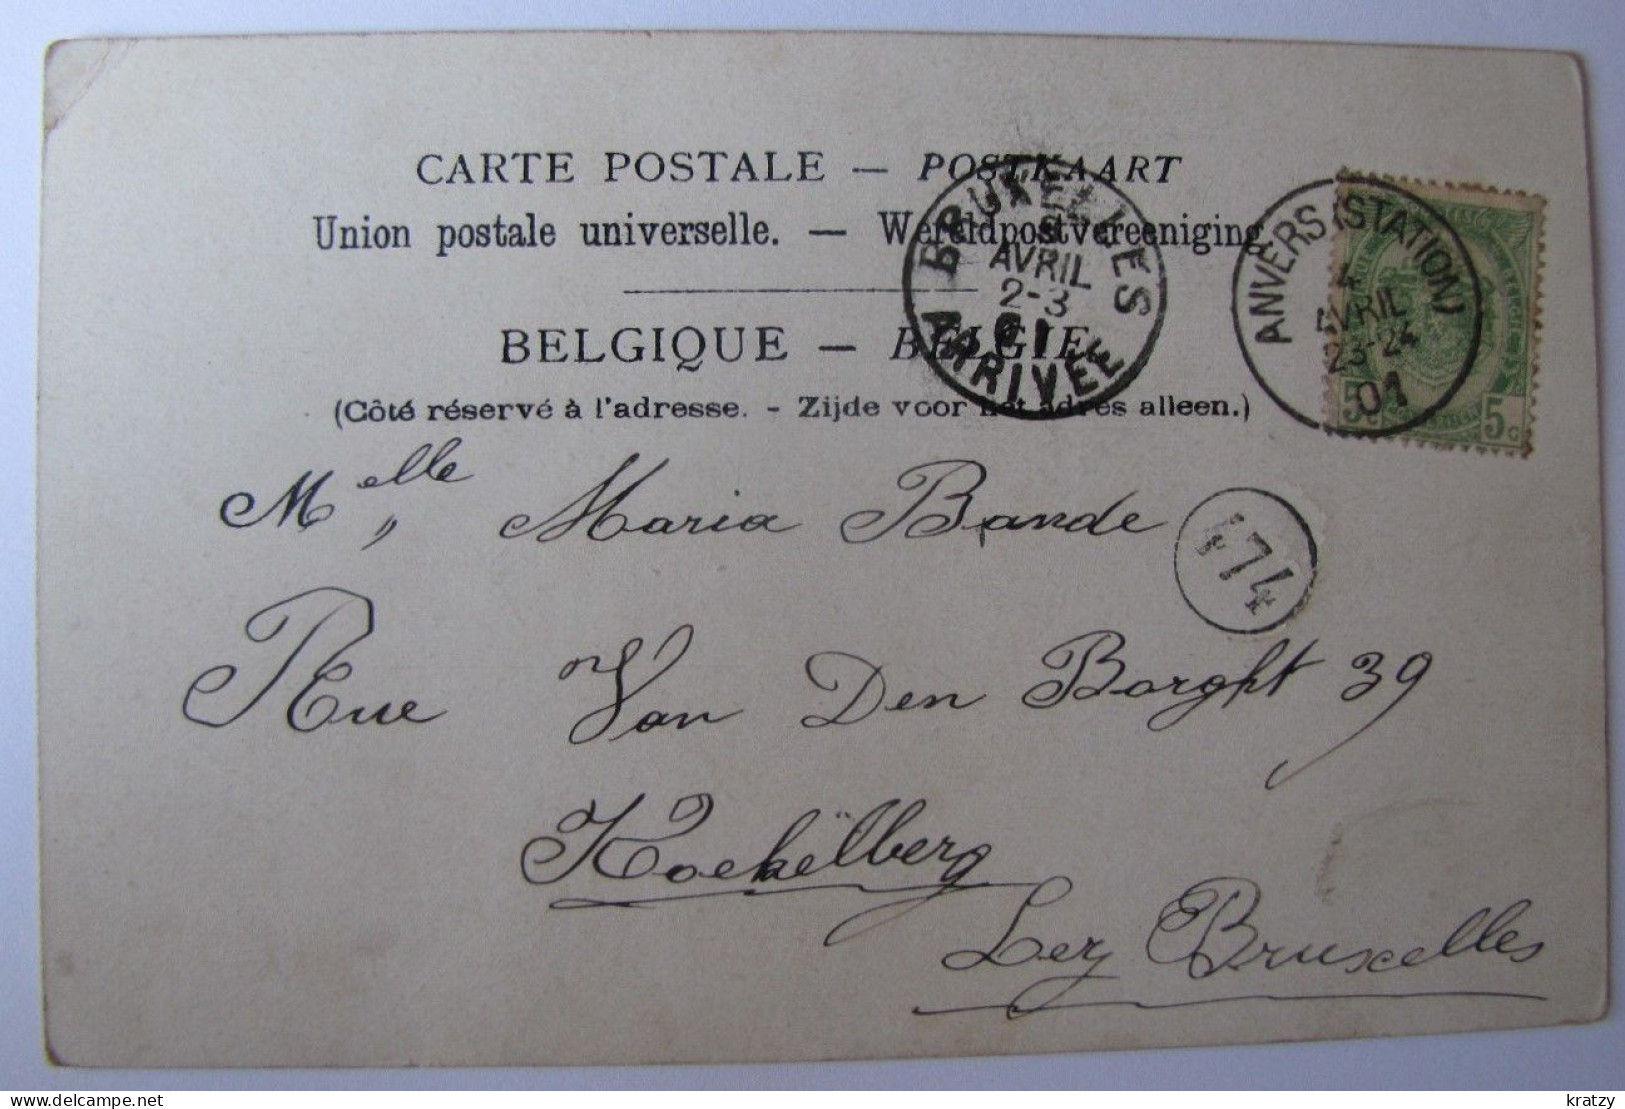 CARTE POSTALE — POSTKAART
Union postale universelle. — Wereldpostvereeniging.
BELGIQUE — BELGIE
(Côté réservé à l'adresse. - Zijde voor het adres alleen.)
BRUXELLES
AVRIL
2-3
01
ARRIVÉE
ANVERS (STATION)
4
AVRIL
23-24
01
5c 5c
Melle Maria Bande
474
Rue Van Den Borght 39
Koekëlberg
Lez Bruxelles
kratzy